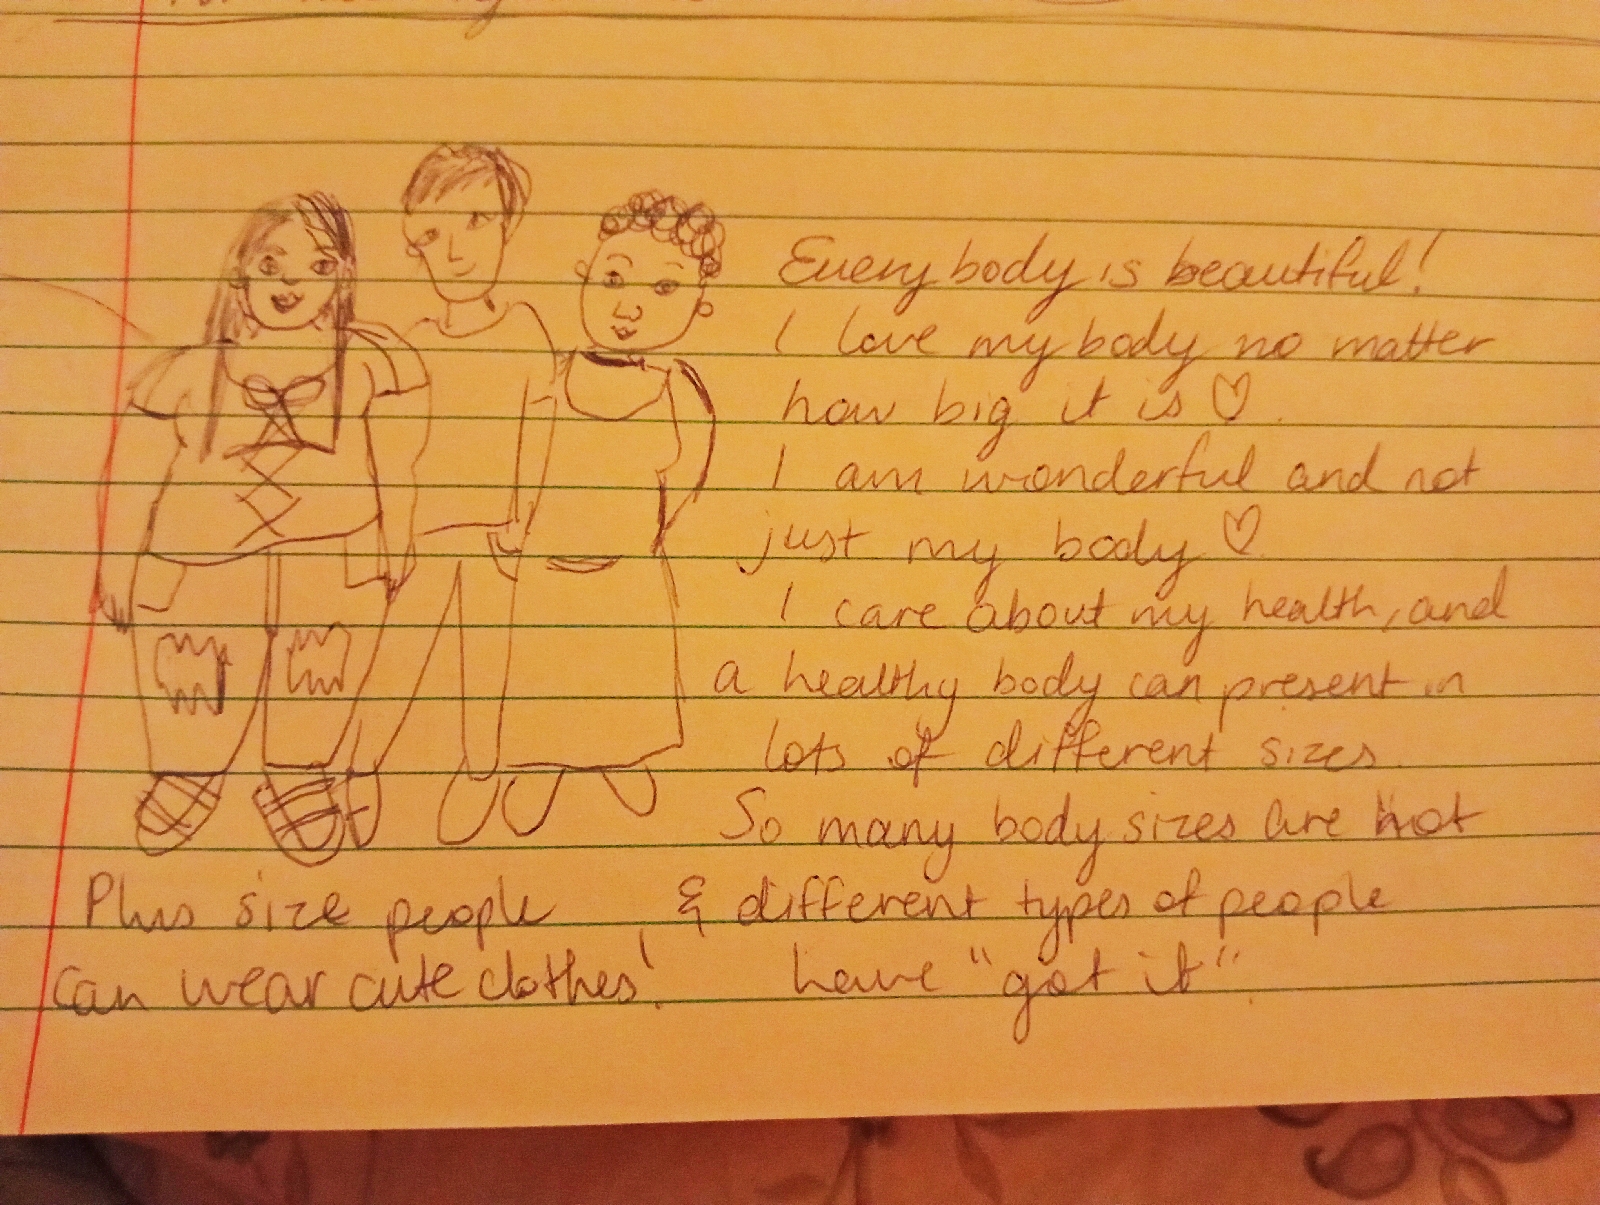 Every body is beautiful!
I love my body no matter
how big it is ♡.
I am wonderful and not
just my body ♡.
I care about my health, and
a healthy body can present in
lots of different sizes.
So many body sizes are hot
& different types of people
have "got it".
Plus size people
can wear cute clothes!